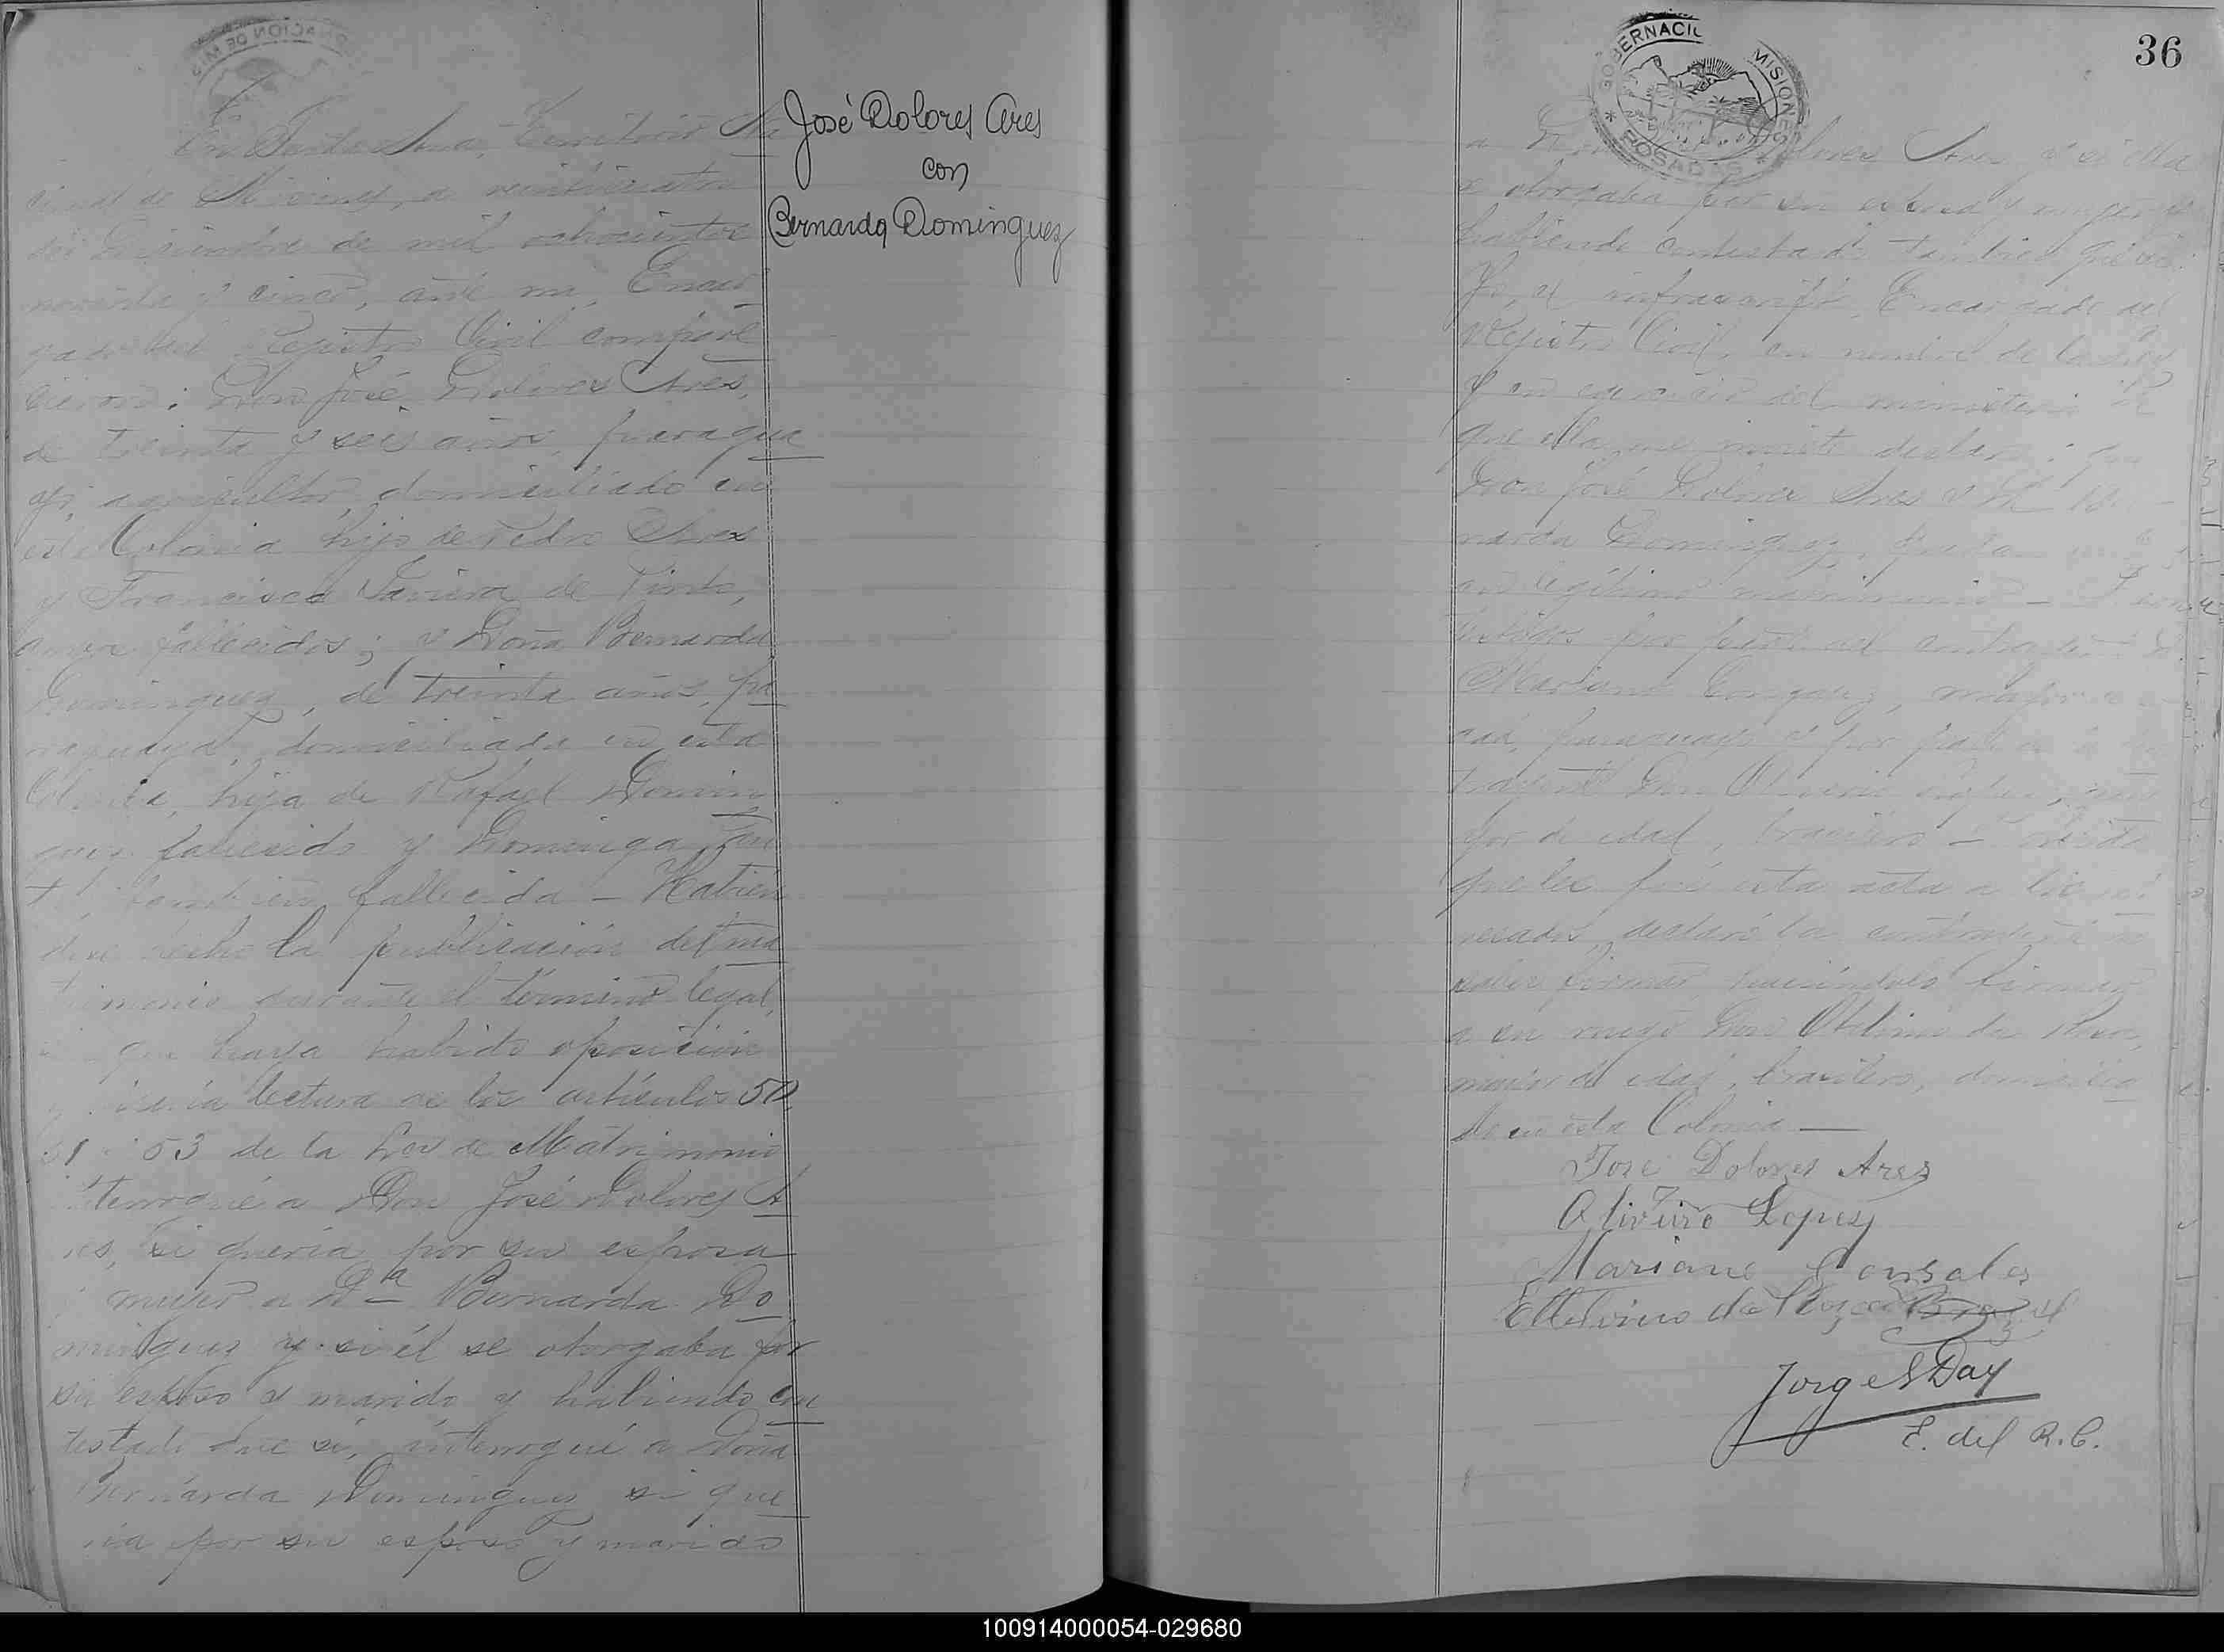 En Santa Ana, Territorio Na
cional de Misiones, a veinticuatro
de Diciembre de mil ochocientos
noventa y cinco, ante mi, Encar
gado del Registro Civil compare
cieron: Don José Dolores Ares,
de treinta y seis años, paragua
yo, agricultor, domiciliado en
esta Colonia hijo de Pedro Ares
y Francisca de
fallecidos; y Doña Bernarda
Dominguez, de treinta años, pa
raguaya, domiciliada en esta
Colonia, hija de Rafael Domin
guez fallecido y Dominga
también fallecida – Habién
dose hecho la publicación del ma
trimonio durante el término legal,
sin que haya habido oposición
y lectura de los artículos 50,
51 y 53 de la Ley de Matrimonio
interrogué a Don José Dolores A
res, si queria por su esposa
y mujer a Dª Bernarda Do
minguez y si él se otorgaba por
su esposo y marido y habiendo con
testado que sí, interrogué a Doña
Bernarda Dominguez si que
ria por su esposo y marido
José Dolores Ares
con
Bernarda Dominguez
36
GOBERNACI MISIONES
* POSADAS *
a Don Dolores Ares y si ella
se otorgaba por su esposa y mujer y
habiendo contestado tambien que sí.
Yo, el infrascripto, Encargado del
Registro Civil, en nombre de la Ley
y en ejercicio del ministerio
que ella me declaro: que
Don José Dolores Ares y Dª Ber
narda Dominguez, quedan
en legítimo matrimonio –
testigos por parte del contrayente D.
Mariano Gonzalez, mayor de e
dad, paraguayo y por parte de la con
trayente Don Lopez, ma
yor de edad, brasilero –
que les fué esta acta a los inte
resados, declaró la contrayente no
saber firmar haciéndolo
a su ruego Don da Rosa,
mayor de edad, brasilero, domicilia
do en esta Colonia —
Jose Dolores Ares
Lopez
Mariano Gonsales
da Roza
Jorge S Day
E. del R.C.
100914000054-029680